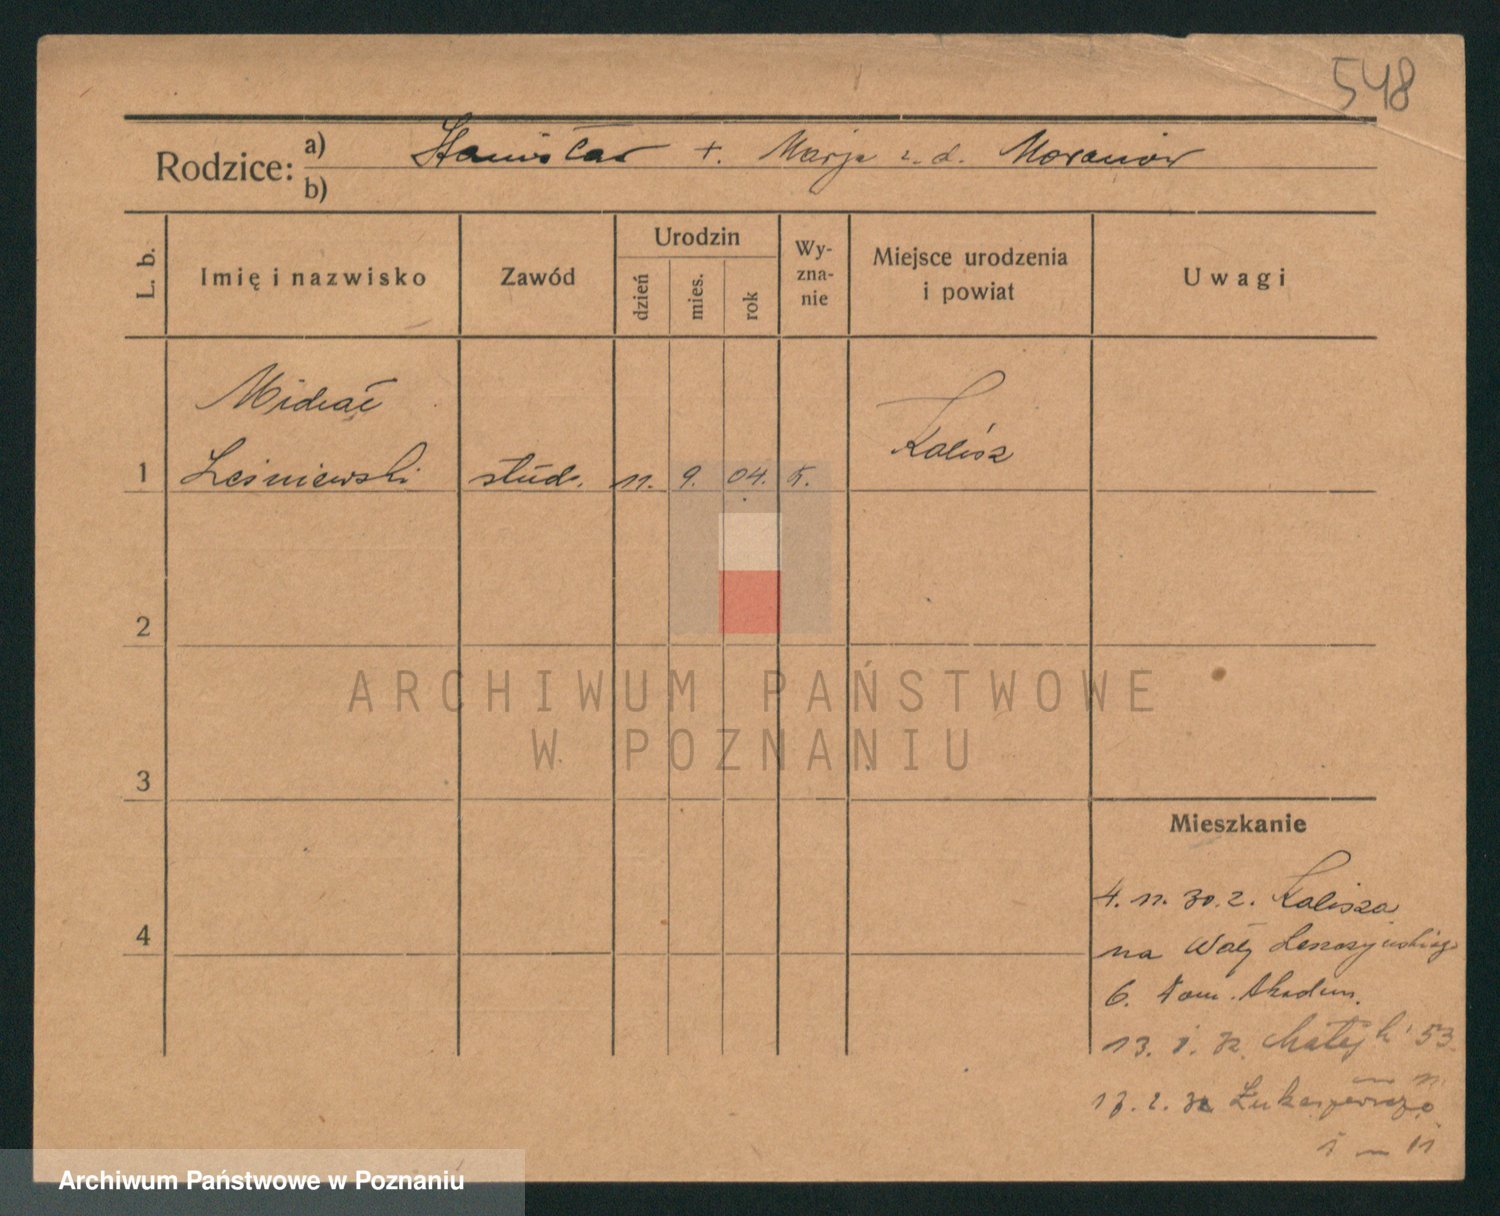 548
Rodzice: a) Stanisław + Marja z. d. Moraniow
b)
L. b.
Imię i nazwisko
Zawód
Urodzin
dzień
mies.
rok
Wy-
zna-
nie
Miejsce urodzenia
i powiat
Uwagi
Michał
1 Leśniewski stud. 11. 9. 04. k. Kalisz
2
ARCHIWUM PAŃSTWOWE
W POZNANIU
3
Mieszkanie
4. 11. 30. z. Kalisza
4
na Wały Leszczyńskiego
6. Dom. Akadem.
13. 1. 32. Matejki 53.
17. 2. 32 Łukaszewicza
Archiwum Państwowe w Poznaniu